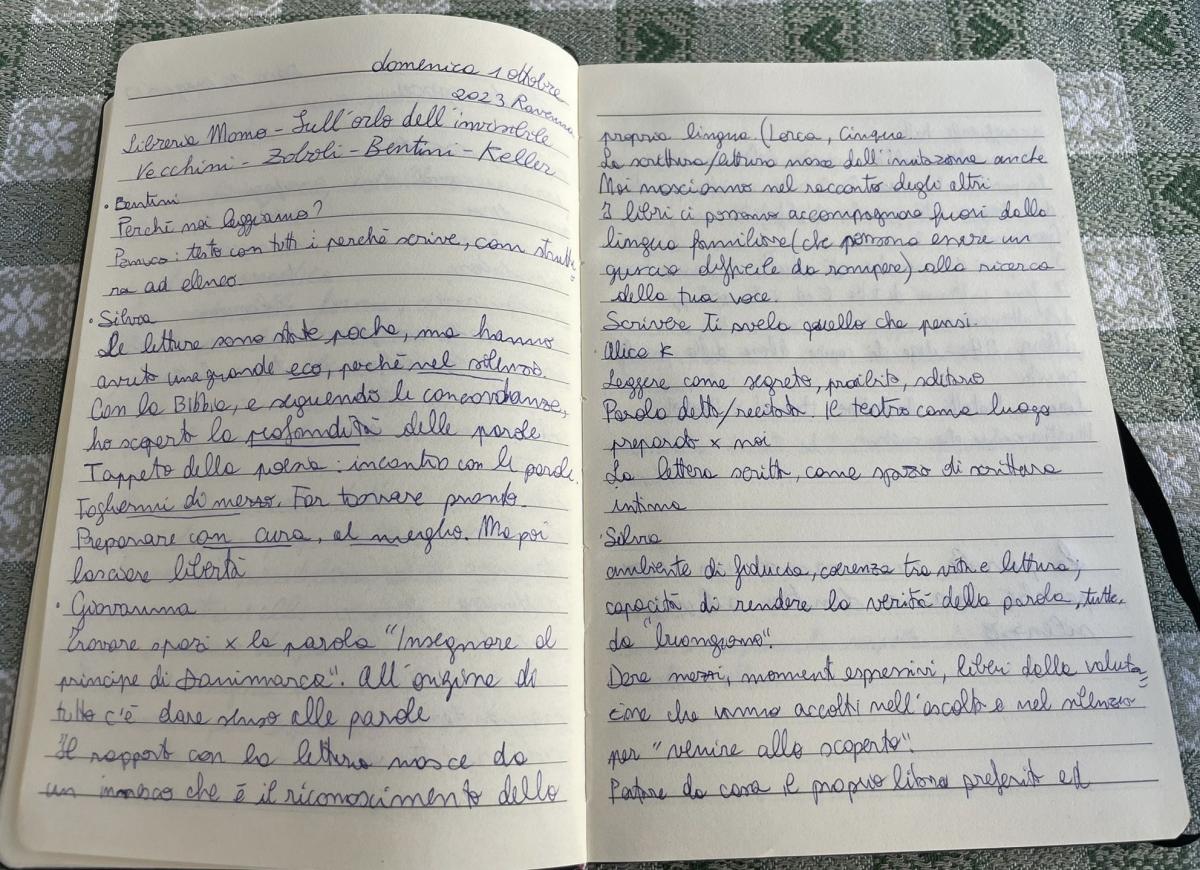 domenica 1 ottobre
2023 Ravenna
Libreria Momo - Sull'orlo dell'invisibile
Vecchini - Zoboli - Bentini - Keller
• Bentini
Perché noi leggiamo?
Pennac: testo con tutti i perché scrive, con strutt=
ra ad elenco.
• Silvia
Le letture sono state poche, ma hanno
avuto una grande eco, perché nel silenzio.
Con la Bibbia, e seguendo le concordanze,
ho scoperto la profondità delle parole
Tappeto della poesia: incontro con le parole.
Togliermi di mezzo. Far trovare pronto.
Preparare con cura, al meglio. Ma poi
lasciare libertà
• Giovanna
Trovare spazi x la parola "Insegnare al
principe di Danimarca". All'origine di
tutto c'è dare senso alle parole
Il rapporto con la lettura nasce da
un che è il riconoscimento dello
propria lingua (Lorca, Cinque
La scrittura/lettura nasce dall'imitazione anche
Noi nasciamo nel racconto degli altri
I libri ci possono accompagnare fuori dalla
lingua familiare (che possono essere un
guscio difficile da rompere) alla ricerca
della tua voce.
Scrivere ti svela quello che pensi.
Alice K
Leggere come segreto, proibito, solitario
Parola detta/recitata. Il teatro come luogo
preparato x noi
La lettera scritta, come spazio di scrittura
intima
• Silvia
ambiente di fiducia, coerenza tra vita e lettura;
capacità di rendere la verità della parola, tutte,
da "buongiorno".
Dare mezzi, momenti espressivi, liberi dalla valuta=
zione che vanno accolti nell'ascolto e nel silenzio
per "venire allo scoperto".
Portare da casa il proprio libro preferito ed